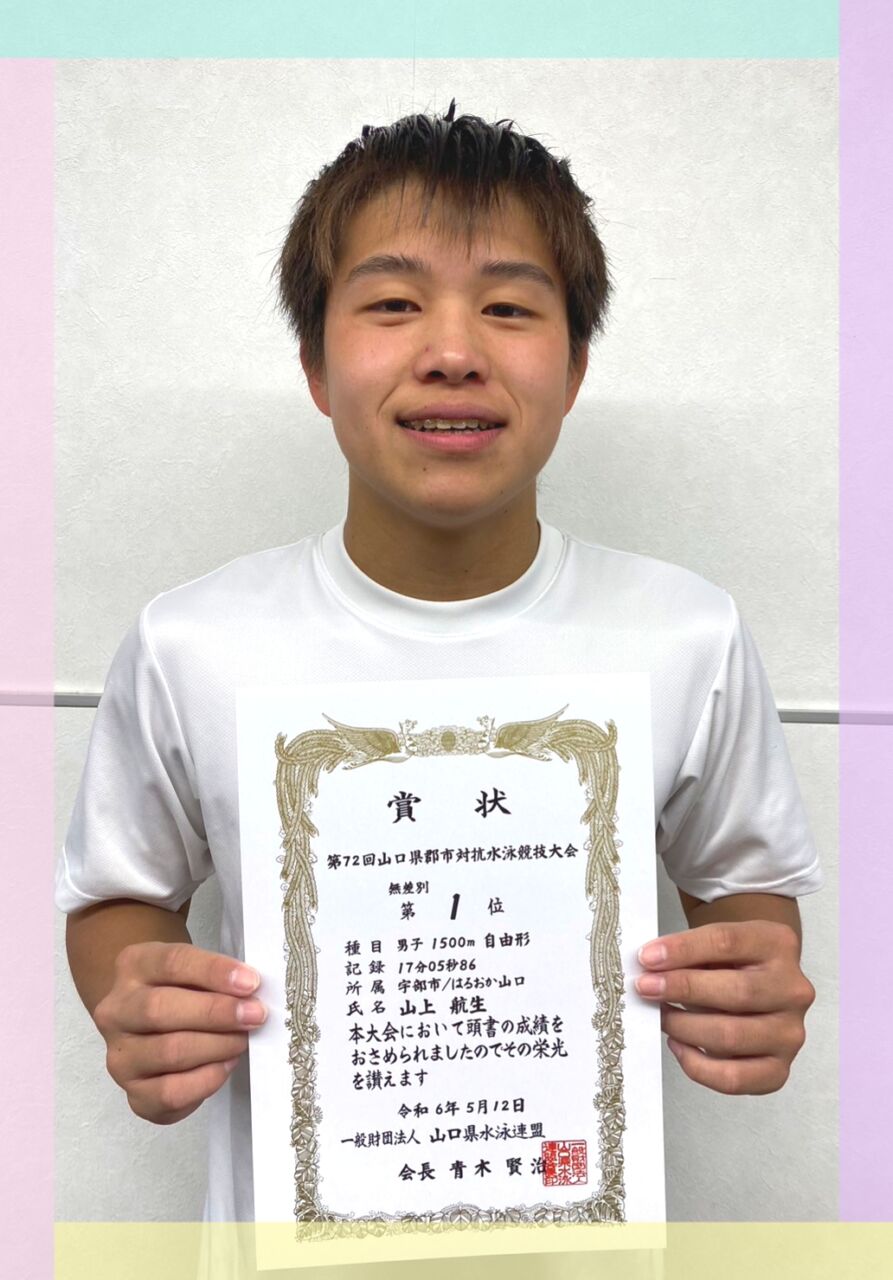 賞 状
第72回山口県郡市対抗水泳競技大会
無差別
第 1 位
種目 男子 1500m 自由形
記録 17分05秒86
所属 宇部市/はるおか山口
氏名 山上 航生
本大会において頭書の成績を
おさめられましたのでその栄光
を讃えます
令和 6年 5月12日
一般財団法人 山口県水泳連盟
会長 青木 賢治